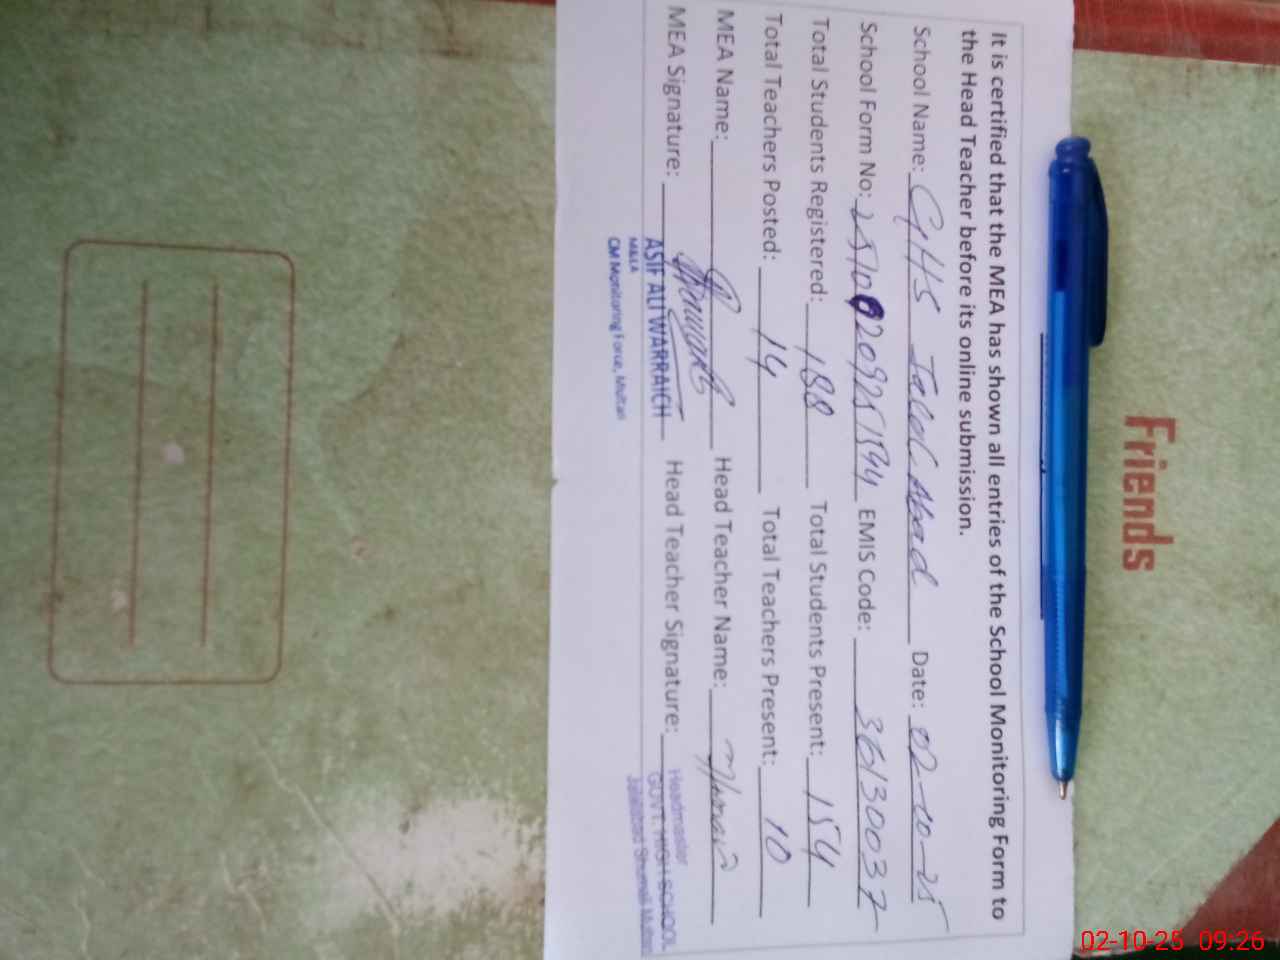 It is certified that the MEA has shown all entries of the School Monitoring Form to
the Head Teacher before its online submission.
School Name: GHS Jalal Abad Date: 02-10-25
School Form No: EMIS Code: 36130037
Total Students Registered: 188 Total Students Present: 154
Total Teachers Posted: 14 Total Teachers Present: 10
MEA Name: Head Teacher Name:
MEA Signature: Head Teacher Signature:
ASIF ALI WARRAICH
M&EA
CM Monitoring Force, Multan
Headmaster
GOVT. HIGH SCHOOL
Jalalabad Shumali Multan
Friends
02-10-25 09:26